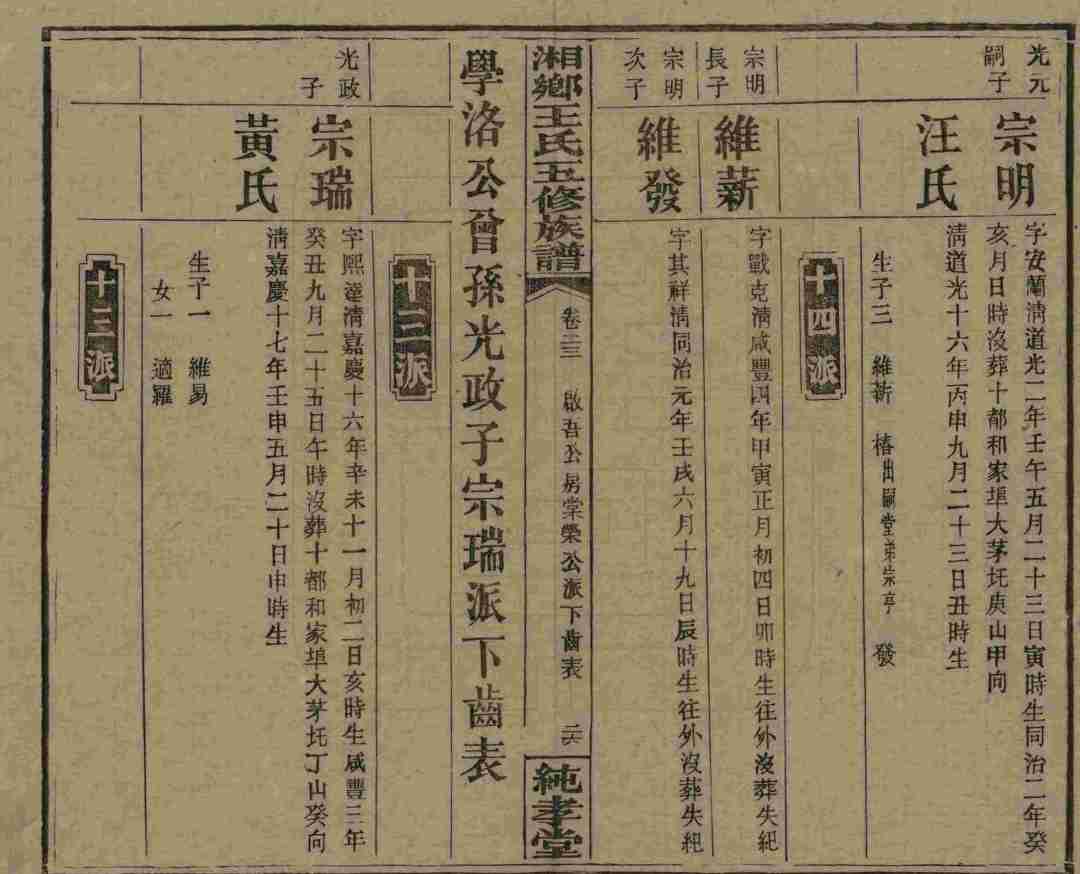 光元
嗣子
宗明
汪氏
字安蘭淸道光二年壬午五月二十三日寅時生同治二年癸
亥月日時沒葬十都和家埠大茅圫庚山甲向
淸道光十六年丙申九月二十三日丑時生
生子三 維薪 椿出嗣堂弟宗亭 發
十四派
宗明
長子
維薪
字戰克淸咸豐四年甲寅正月初四日卯時生往外沒葬失紀
宗明
次子
維發
字其祥淸同治元年壬戌六月十九日辰時生往外沒葬失紀
湘鄉王氏五修族譜
卷三三 啟吾公房棠榮公派下齒表 二六
純孝堂
學洛公曾孫光政子宗瑞派下齒表
十三派
光政
子
宗瑞
黃氏
字熙達淸嘉慶十六年辛未十一月初二日亥時生咸豐三年
癸丑九月二十五日午時沒葬十都和家埠大茅圫丁山癸向
淸嘉慶十七年壬申五月二十日申時生
生子一 維易
女一 適羅
十三派